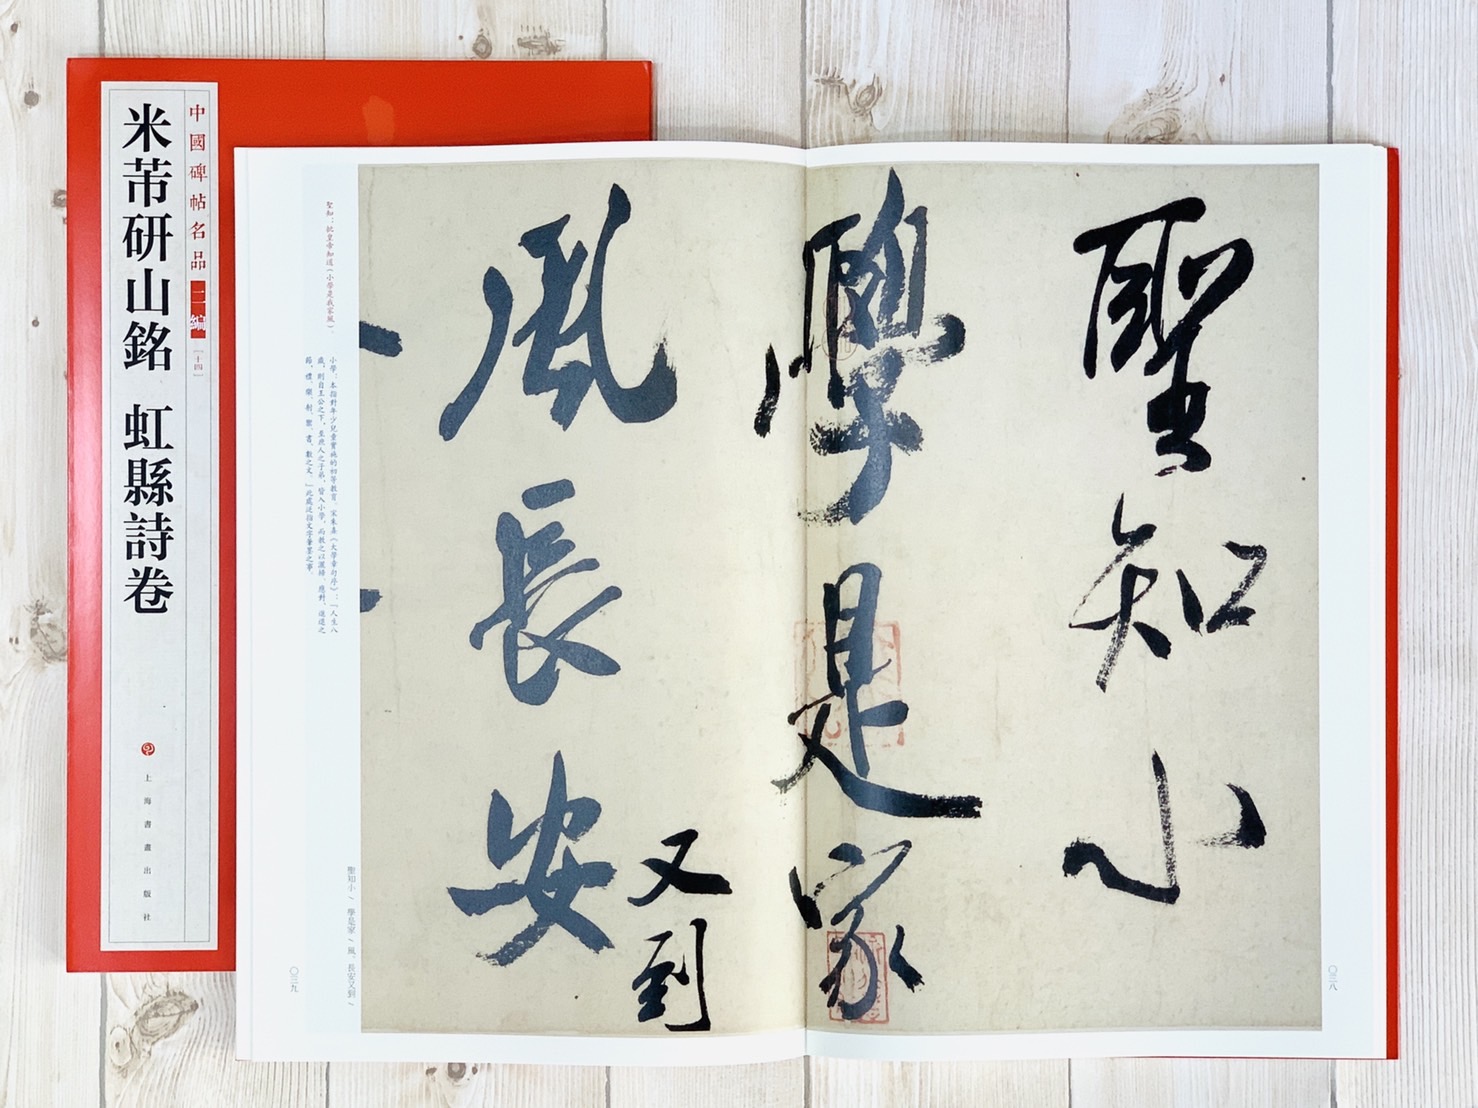 中國碑帖名品二編
[十四]
米芾研山銘 虹縣詩卷
上海書畫出版社
聖知小
學是家
風長安
又到
聖知：抗皇帝知道（小學是我家風）。
小學：本指對年少兒童實施的初等教育。宋朱熹《大學章句序》：「人生八
歲，則自王公之下，至庶人之子弟，皆入小學，而教之以灑掃、應對、進退之
節，禮、樂、射、御、書、數之文。」此處泛指文字筆墨之事。
聖知小／學是家／風。長安又到／
〇三八
〇三九